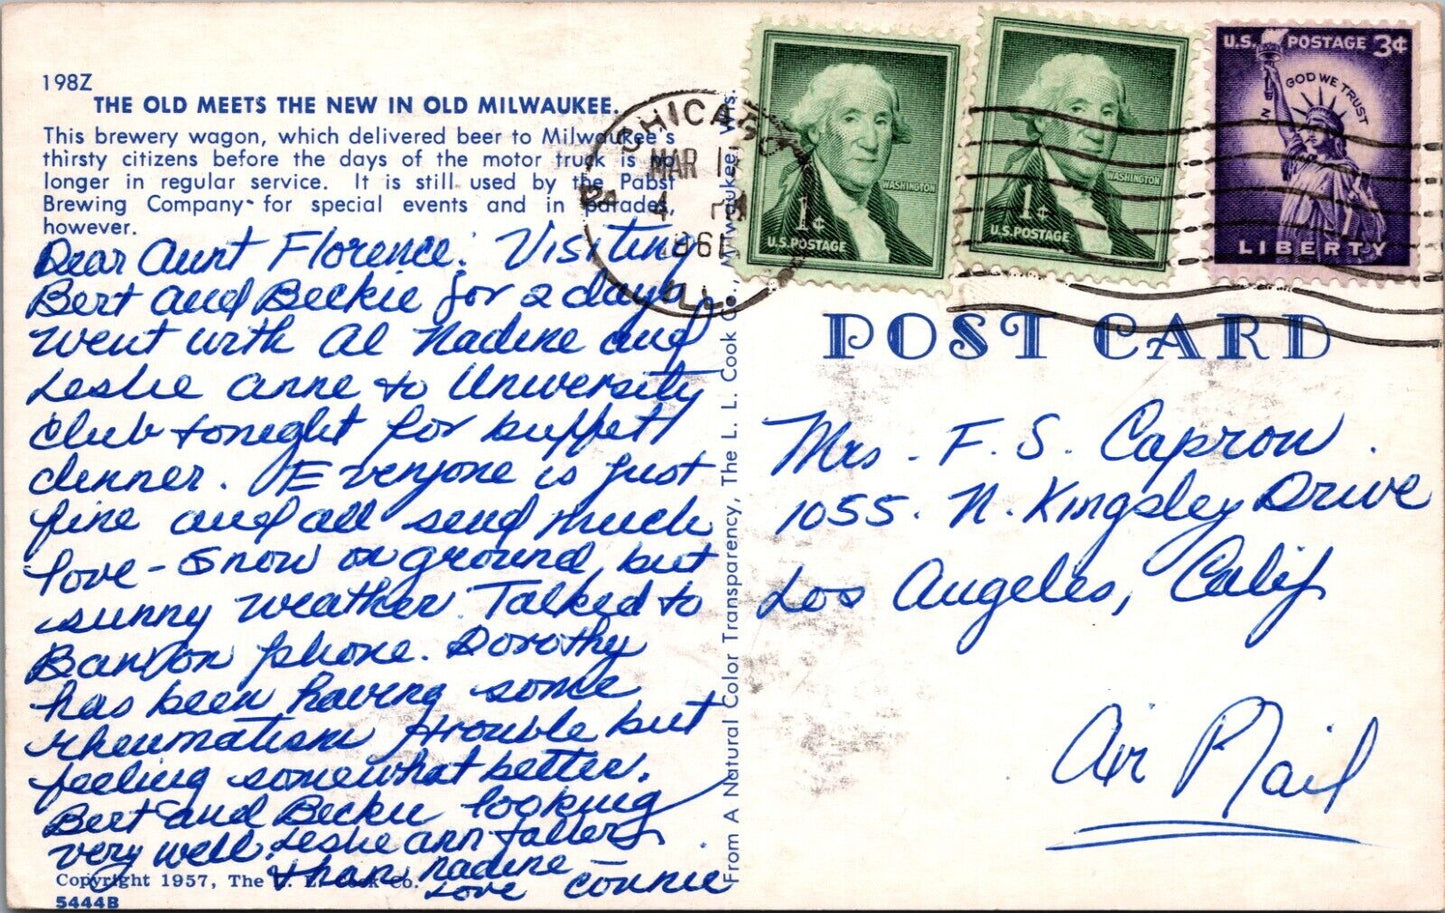 198Z
THE OLD MEETS THE NEW IN OLD MILWAUKEE.
This brewery wagon, which delivered beer to Milwaukee's
thirsty citizens before the days of the motor truck is no
longer in regular service. It is still used by the Pabst
Brewing Company for special events and in parades,
however.
Dear Aunt Florence: Visiting
Bert and Beckie for 2 days,
went with Al Nadine and
Leslie Anne to University
Club tonight for buffett
dinner. Everyone is just
fine and all send much
love - Snow on ground, but
sunny weather. Talked to
Bandon phone. Dorothy
has been having some
rheumatism trouble but
feeling somewhat better.
Bert and Beckie looking
very well. Leslie Ann taller
than Nadine
Love Connie
Copyright 1957, The L. L. Cook Co.
5444B
From A Natural Color Transparency, The L. L. Cook Co., Milwaukee, Wis.
CHICAGO
MAR 1
4 PM
1961
ILL.
WASHINGTON
1¢
U.S. POSTAGE
WASHINGTON
1¢
U.S. POSTAGE
U.S. POSTAGE 3¢
IN GOD WE TRUST
LIBERTY
POST CARD
Mrs. F. S. Capron.
1055. N. Kingsley Drive
Los Angeles, Calif
Air Mail